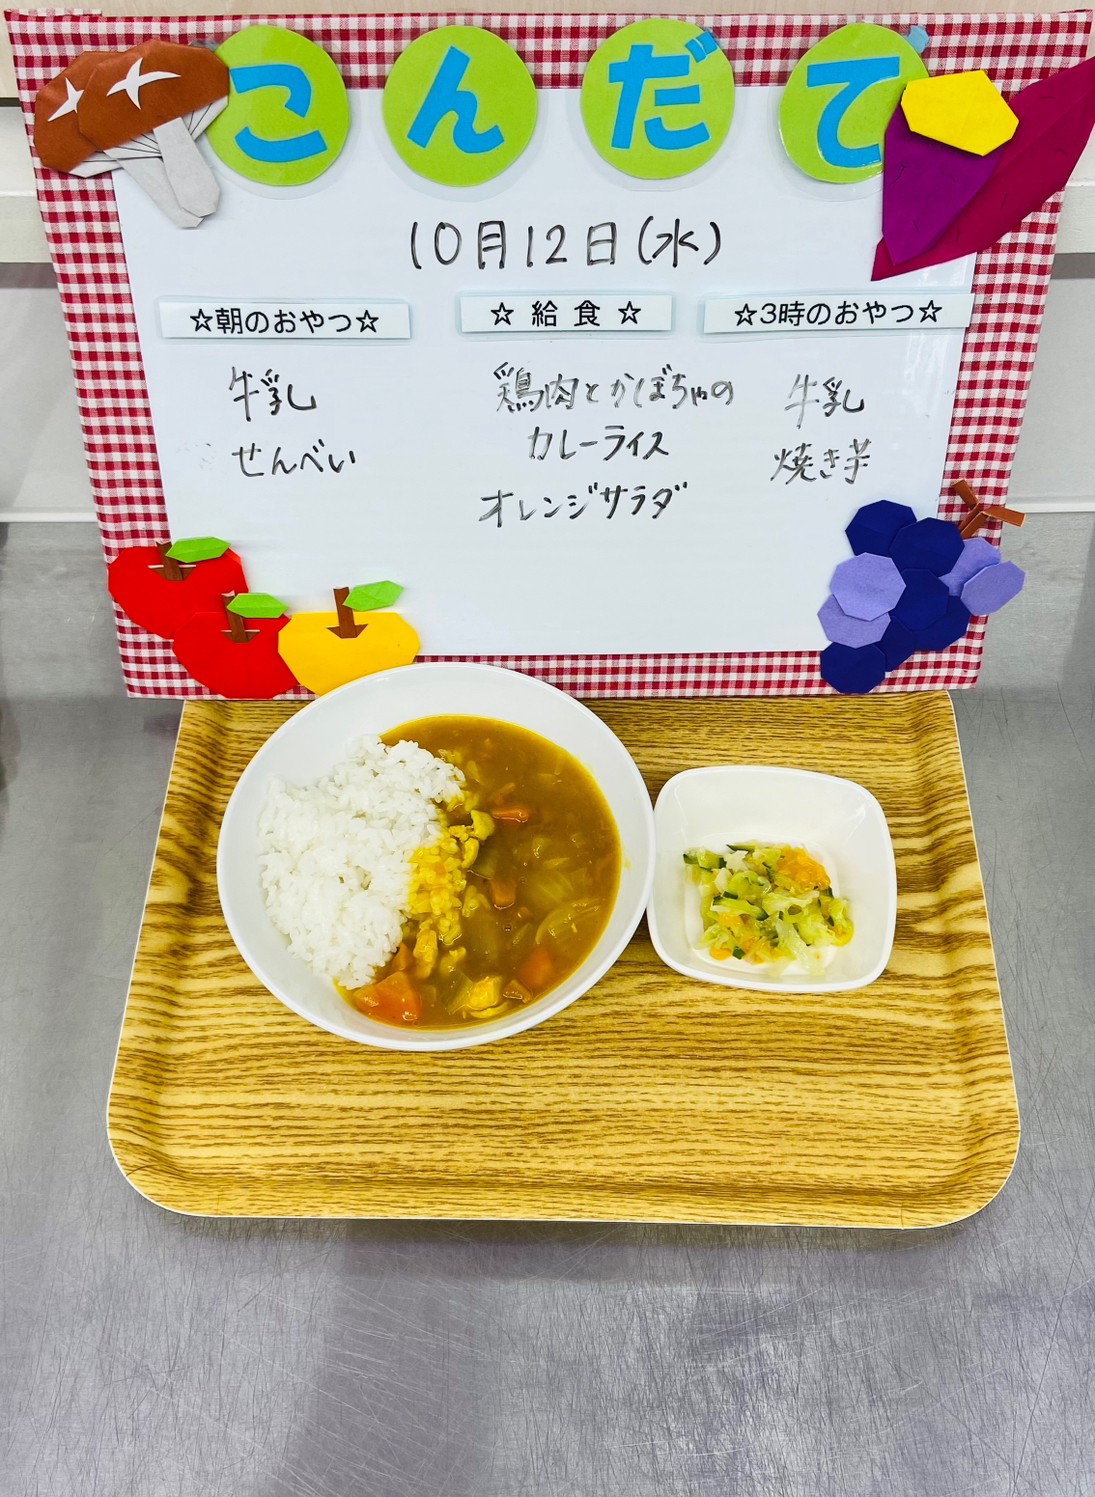 こんだて
10月12日(水)
☆朝のおやつ☆
牛乳
せんべい
☆ 給 食 ☆
鶏肉とかぼちゃの
カレーライス
オレンジサラダ
☆3時のおやつ☆
牛乳
焼き芋